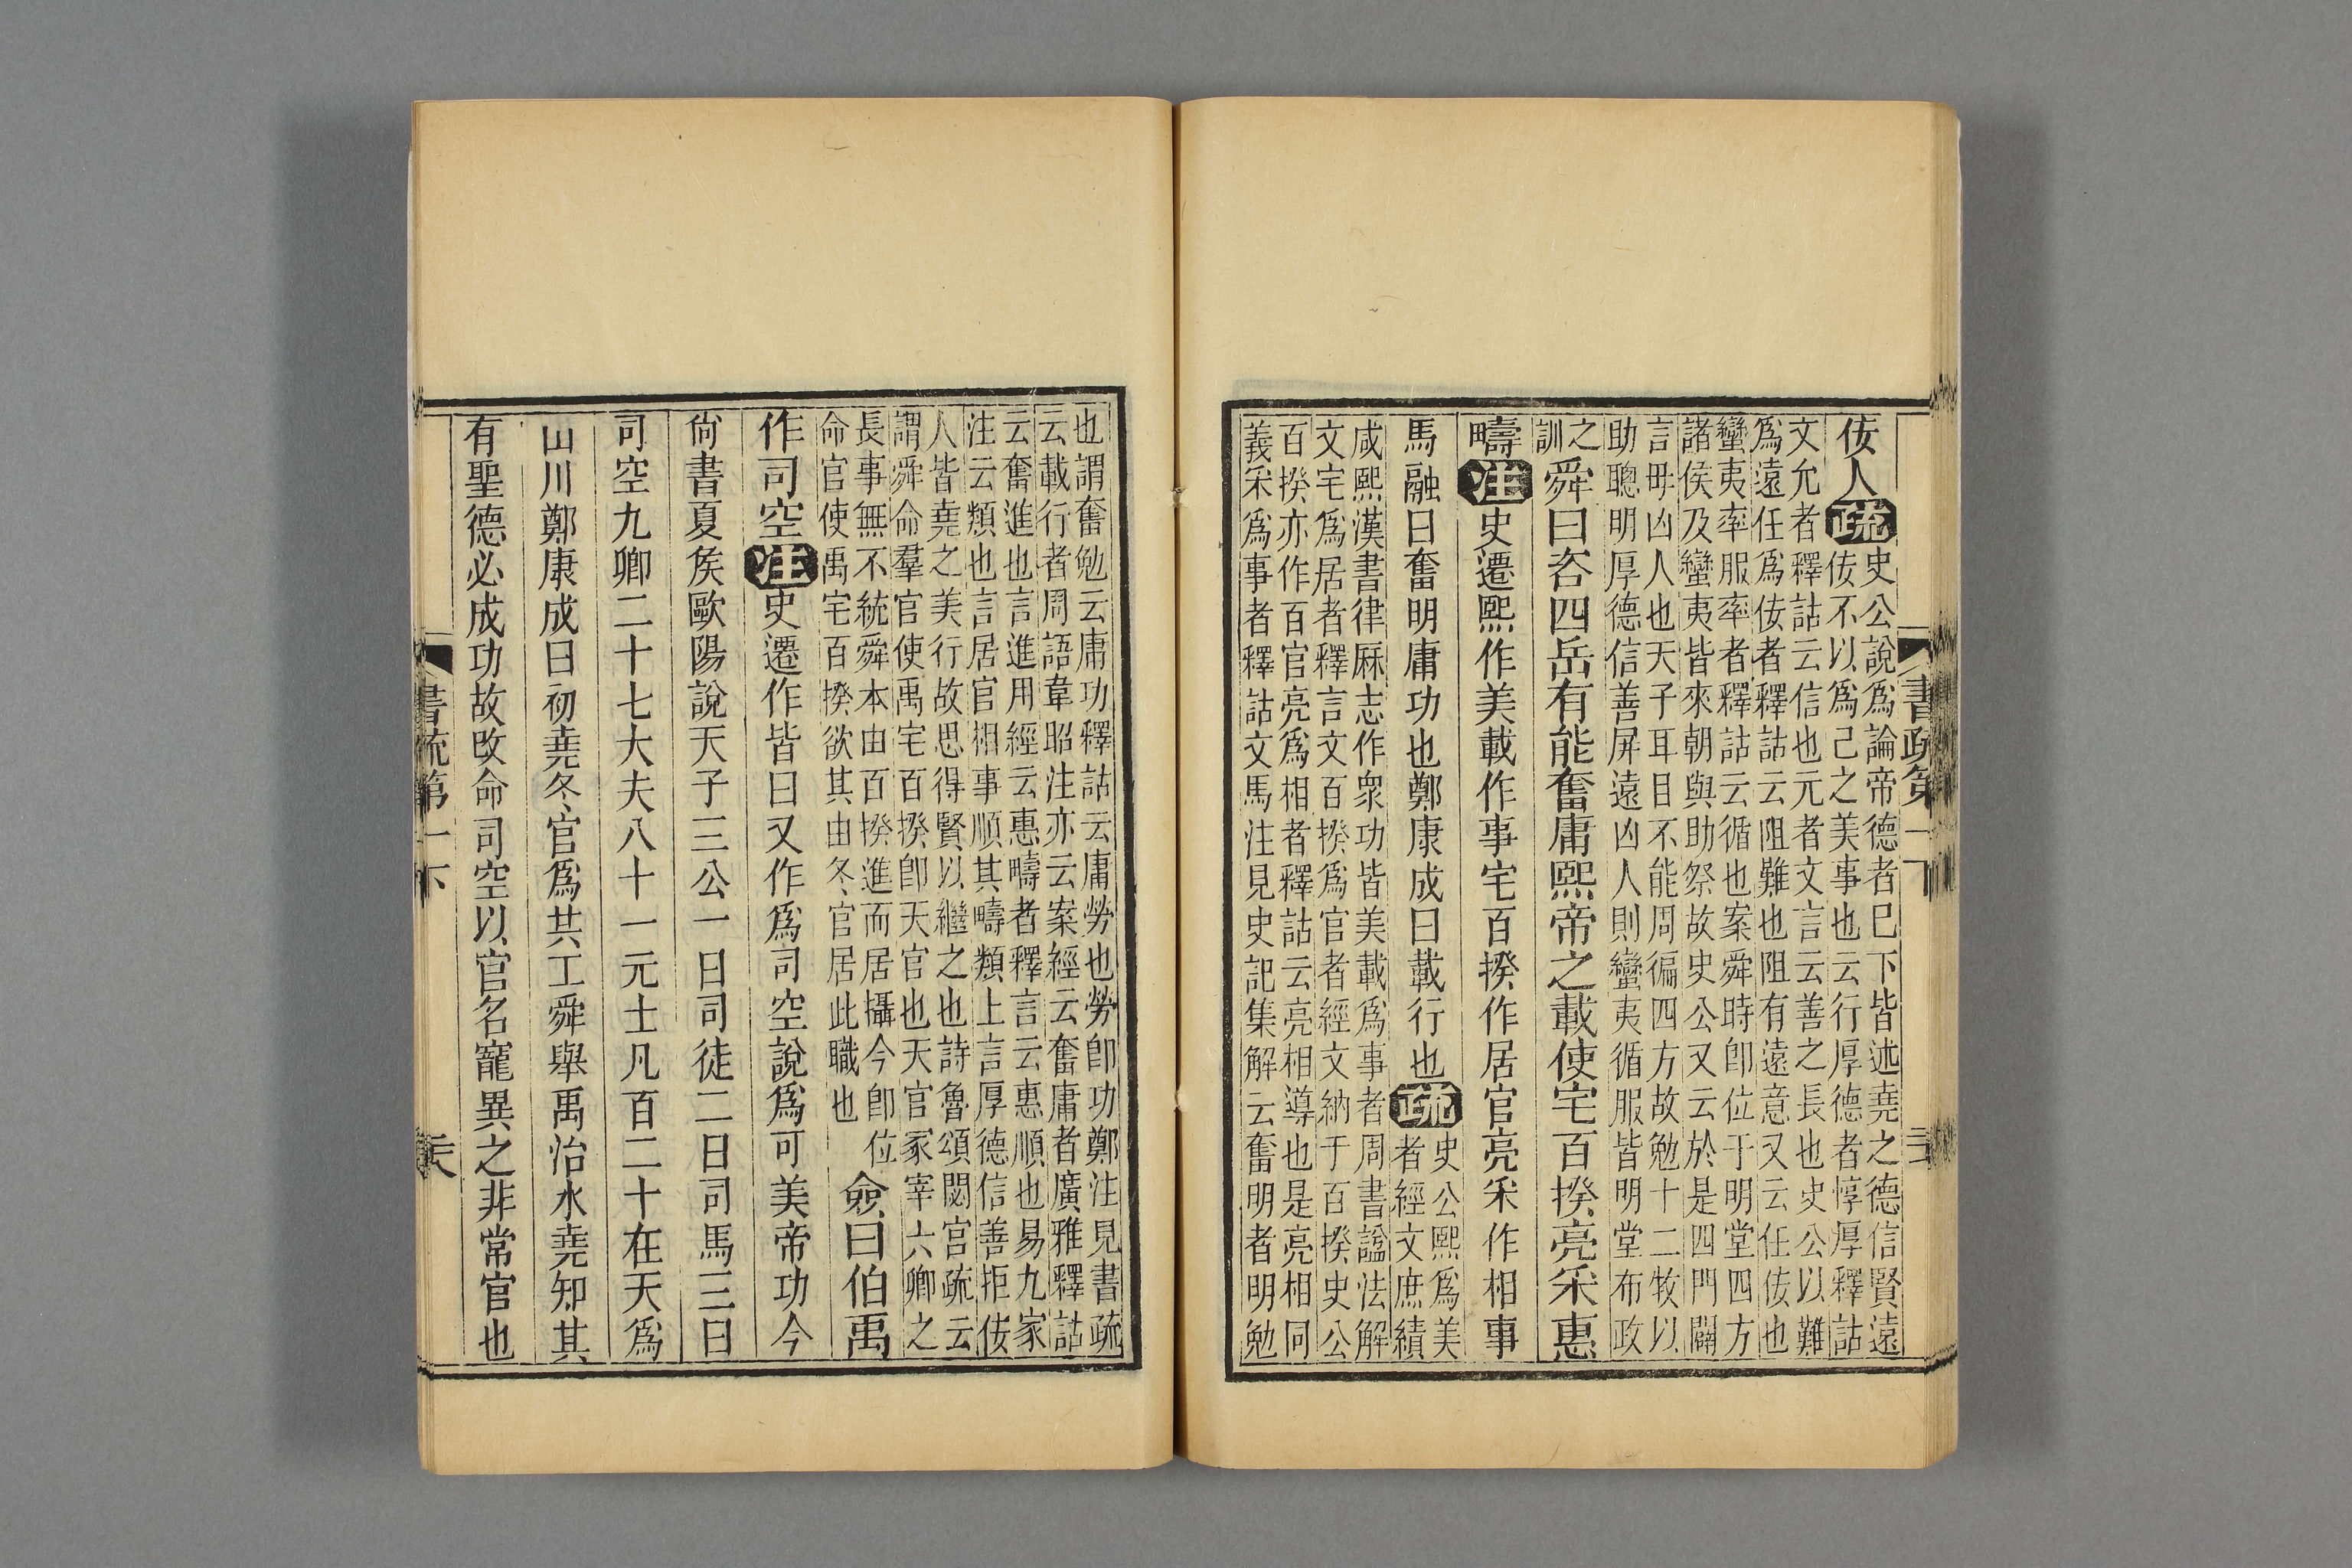 佞人疏史公說爲論帝德者巳下皆述堯之德信賢遠
佞不以爲己之美事也云行厚德者惇厚釋詁
文允者釋詁云信也元者文言云善之長也史公以難
爲遠任爲佞者釋詁云阻難也阻有遠意又云任佞也
蠻夷率服率者釋詁云循也案舜時卽位于明堂四方
諸侯及蠻夷皆來朝與助祭故史公又云於是四門闢
言毋凶人也天子耳目不能周徧四方故勉十二牧以
助聰明厚德信善屏遠凶人則蠻夷循服皆明堂布政
之
訓
舜曰咨四岳有能奮庸熙帝之載使宅百揆亮采惠
疇注史遷熙作美載作事宅百揆作居官亮采作相事
馬融曰奮明庸功也鄭康成曰載行也疏史公熙爲美
者經文庶績
咸熙漢書律厤志作衆功皆美載爲事者周書諡法解
文宅爲居者釋言文百揆爲官者經文納于百揆史公
百揆亦作百官亮爲相者釋詁云亮相導也是亮相同
義采爲事者釋詁文馬注見史記集解云奮明者明勉
書疏第一下
也謂奮勉云庸功釋詁云庸勞也勞卽功鄭注見書疏
云載行者周語韋昭注亦云案經云奮庸者廣雅釋詁
云奮進也言進用經云惠疇者釋言云惠順也易九家
注云類也言居官相事順其疇類上言厚德信善拒佞
人皆堯之美行故思得賢以繼之也詩魯頌閟宮疏云
謂舜命羣官使禹宅百揆卽天官也天官冢宰六卿之
長事無不統舜本由百揆進而居攝今卽位
命官使禹宅百揆欲其由冬官居此職也
僉曰伯禹
作司空注史遷作皆曰又作爲司空說爲可美帝功今
尙書夏矦歐陽說天子三公一曰司徒二曰司馬三曰
司空九卿二十七大夫八十一元士凡百二十在天爲
山川鄭康成曰初堯冬官爲共工舜舉禹治水堯知其
有聖德必成功故改命司空以官名寵異之非常官也
書疏第一下